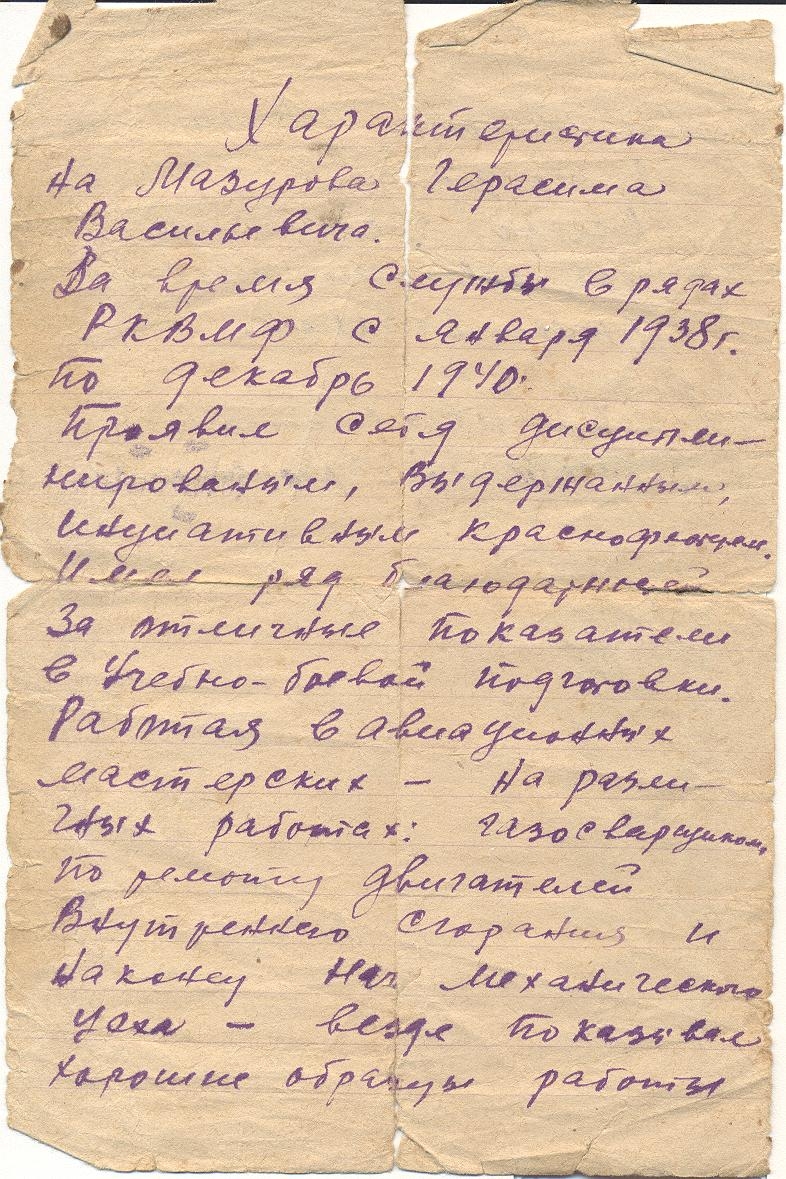 Характеристика
на Мазурова Герасима
Васильевича.
За время службы в рядах
РКВМФ с января 1938 г.
по декабрь 1940.
Проявил себя дисципли-
нированым, выдержанным,
инциативным краснофлотцем.
Имел ряд благодарностей
За отличные показатели
в учебно-боевой подготовки.
Работая в авиационных
мастерских – на разли-
чных работах: газосварщиком,
по ремонту двигателей
внутреннего сгорания и
наконец нач механического
цеха – везде показывал
хорошие образцы работы